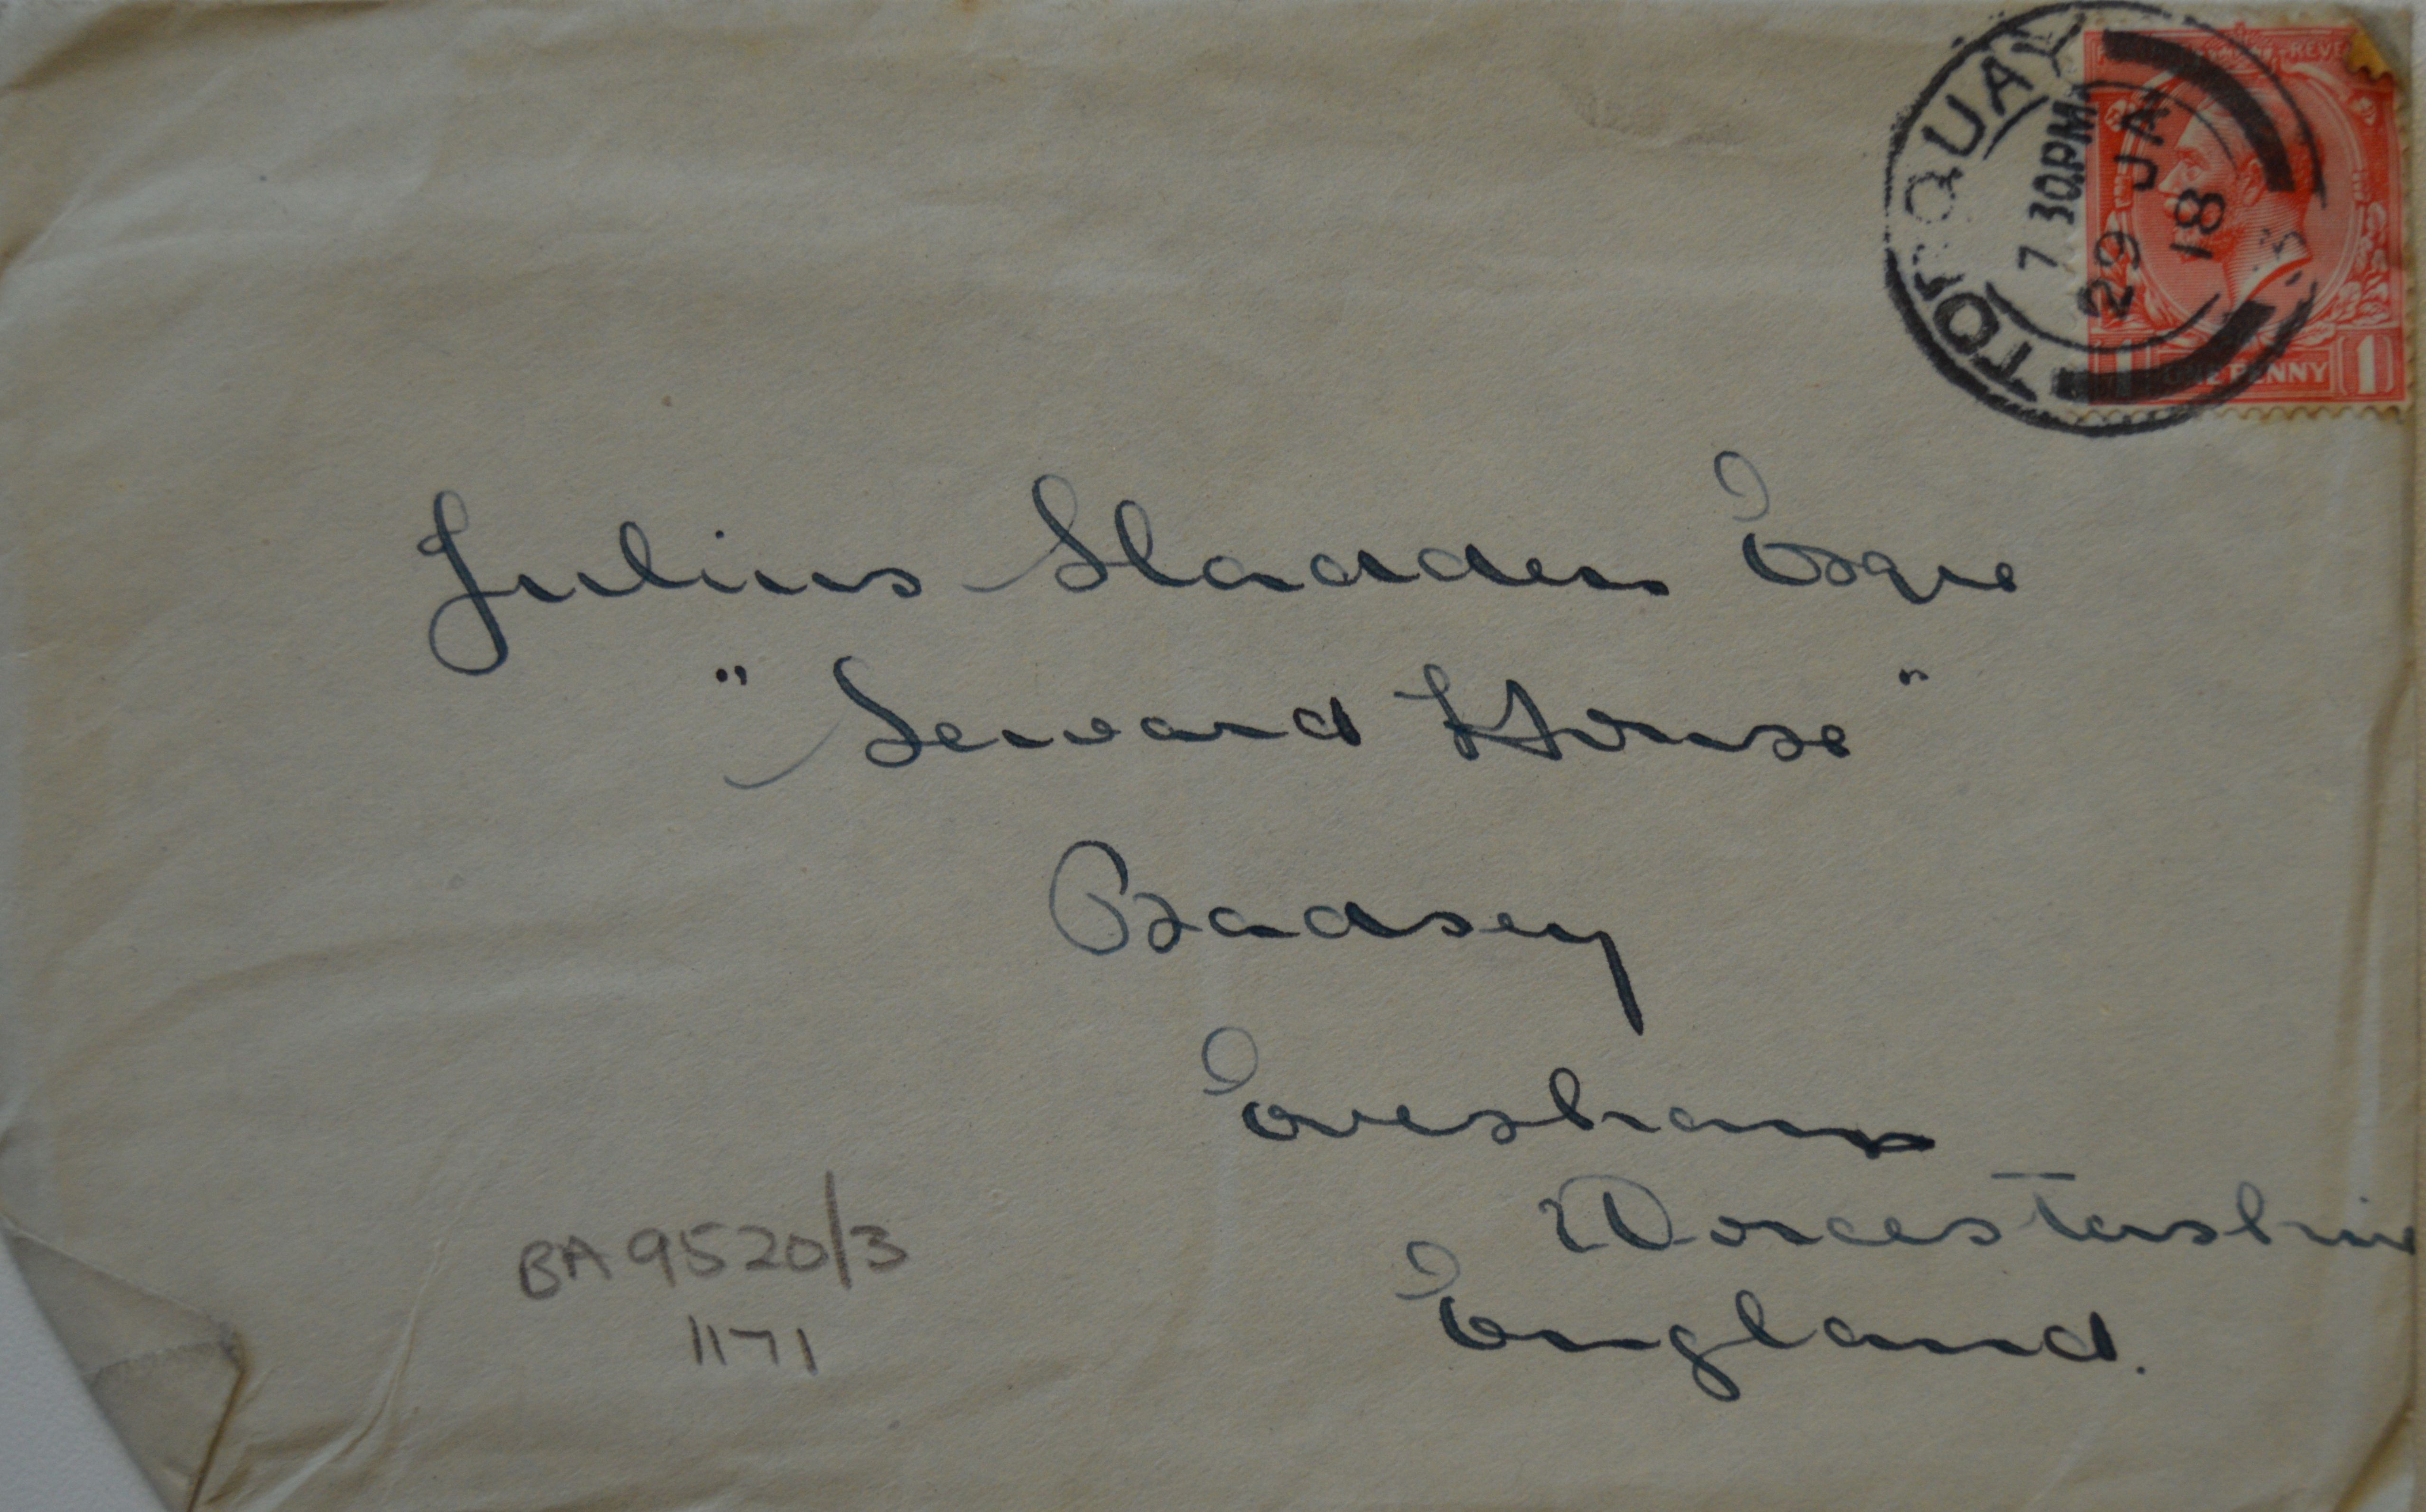 TORQUAY
7 30PM
29 JA
18
REVE
ONE PENNY
1 1
Julius Sladden Esqre
"Seward House"
Badsey
Evesham
Worcestershire
England.
BA 9520/3
1171